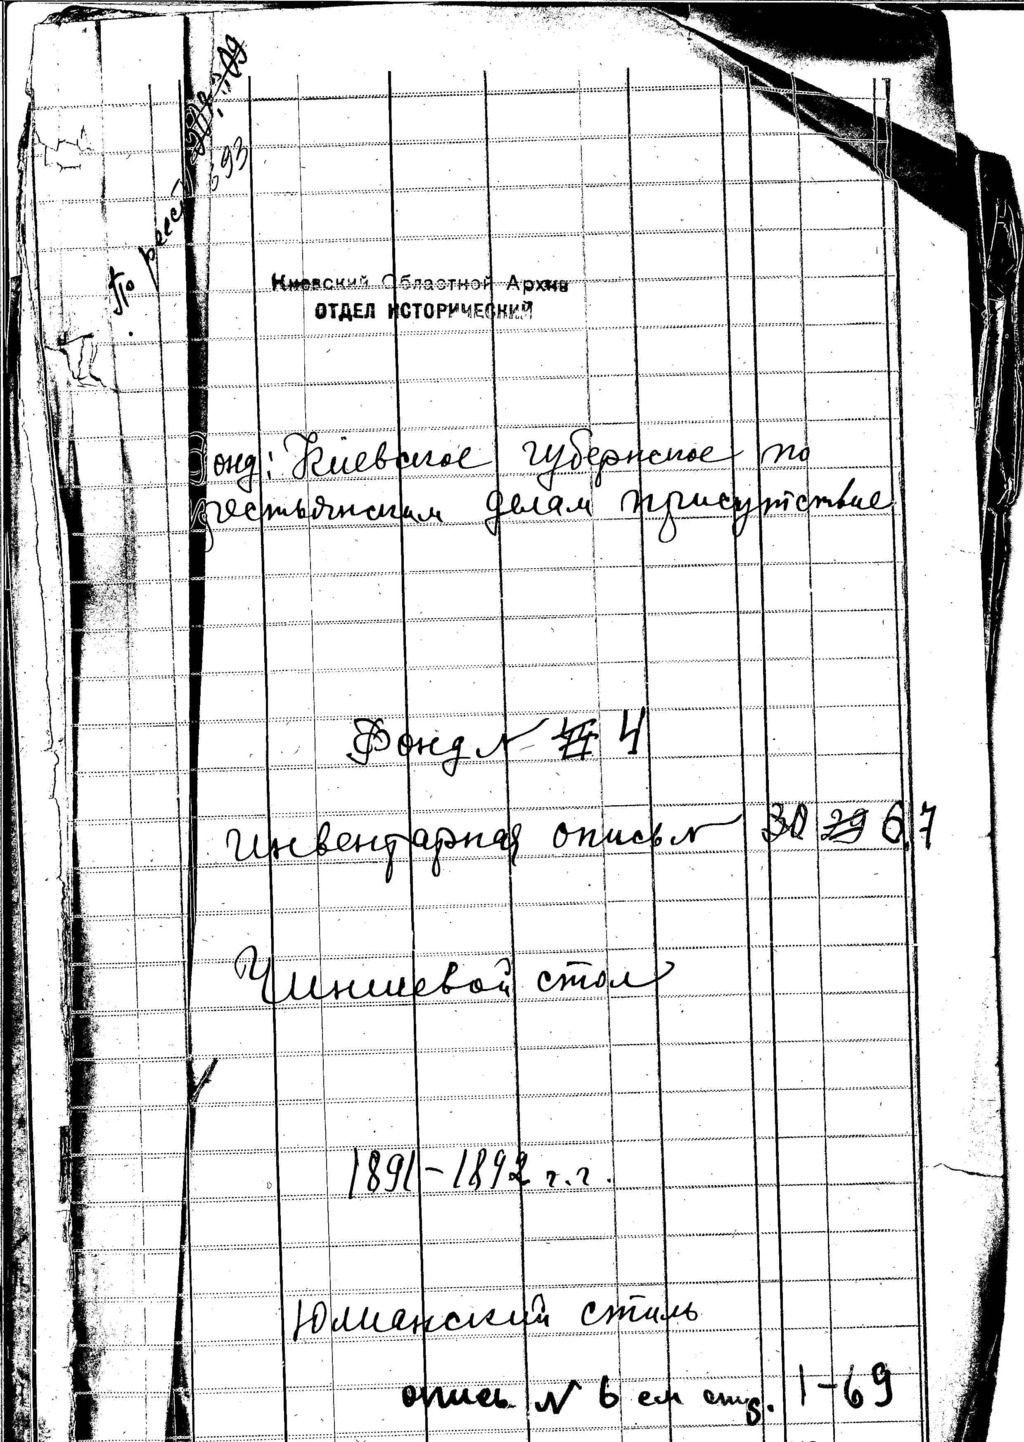 По реест
93
Киевский Областной Архив
ОТДЕЛ ИСТОРИЧЕСКИЙ
Фонд: Киевское губернское по
крестьянским делам присутствие
Фонд N 4
Инвентарная опись N 30 29 6,7
Чиншевой стол
1891-1892 г.г.
Юлианский стиль
опись N 6 см стр. 1-69